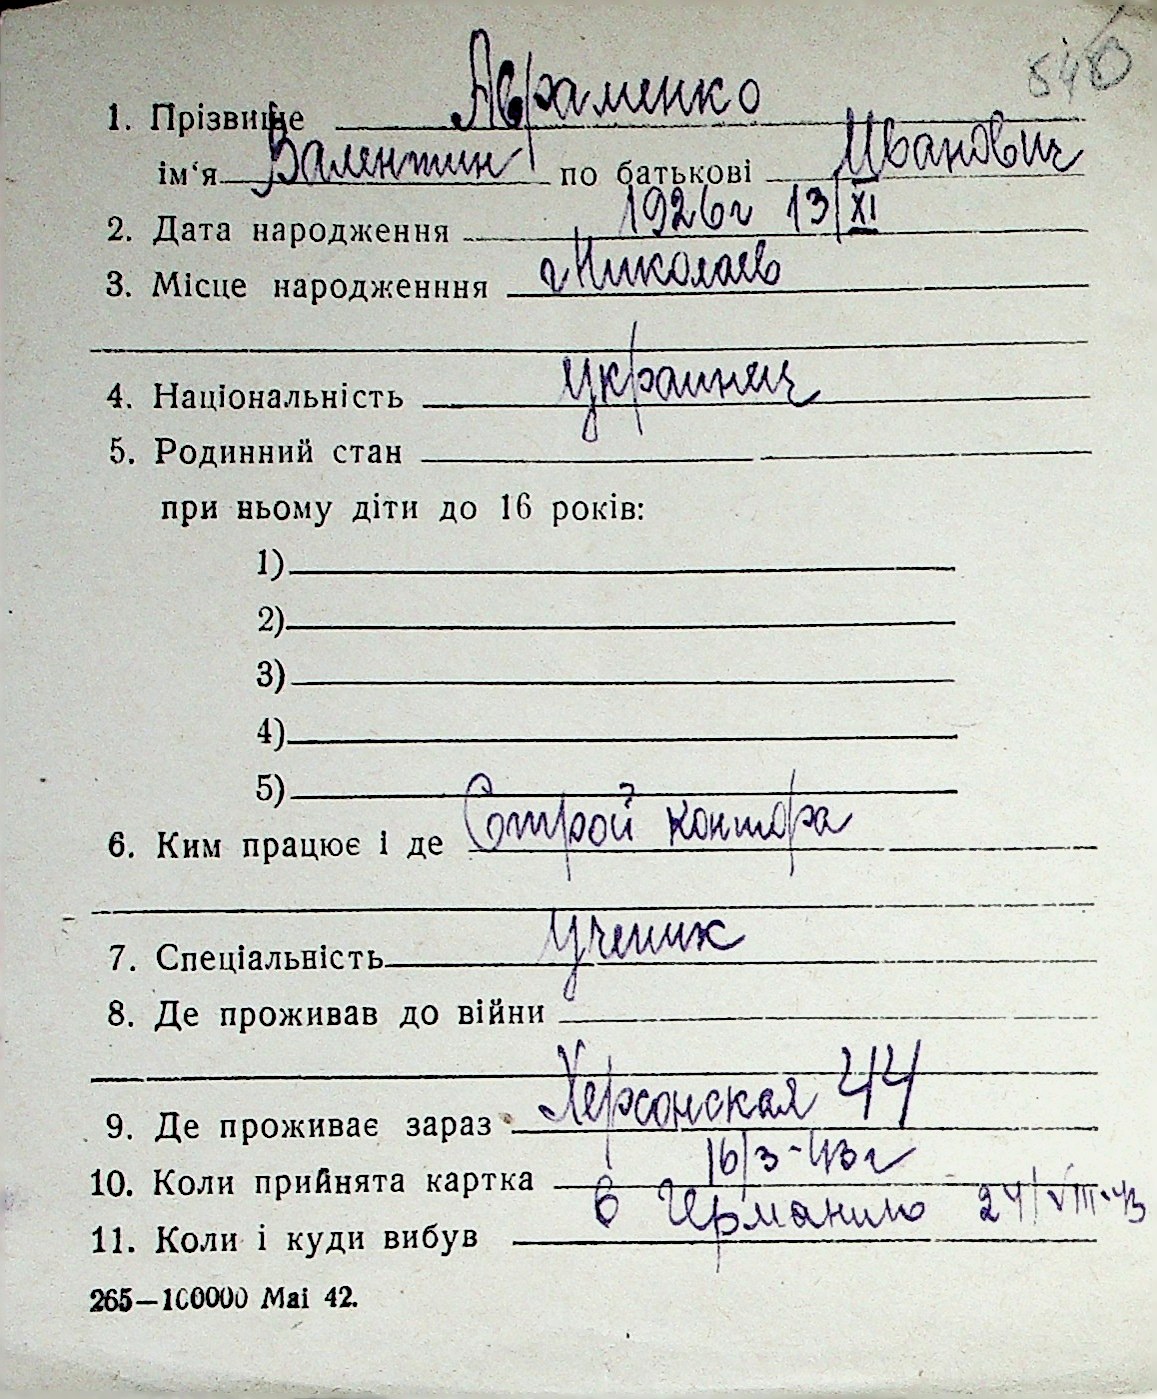 540
1. Прізвище Авраменко
ім‘я Валентин по батькові Иванович
2. Дата народження 1926г 13/XI
3. Місце народженння г Николаев
4. Національність украинец
5. Родинний стан
при ньому діти до 16 років:
1)
2)
3)
4)
5)
6. Ким працює і де Строй контора
7. Спеціальність ученик
8. Де проживав до війни
9. Де проживає зараз Херсонская 44
10. Коли прийнята картка 16/3-43г
11. Коли і куди вибув в Германию 24/VIII-43
265—100000 Mai 42.